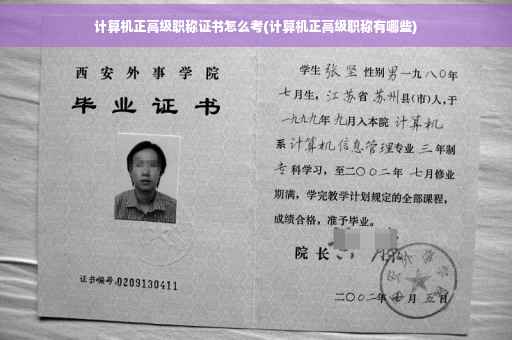 计算机正高级职称证书怎么考(计算机正高级职称有哪些)
西安外事学院
毕业证书
证书编号:0209130411
学生 张坚 性别 男 一九八〇年
七月生，江苏省 苏州县(市)人,于
一九九九年 九月入本院 计算机
系 计算机信息管理专业 三 年制
专科学习，至二〇〇二年 七月修业
期满，学完教学计划规定的全部课程，
成绩合格，准予毕业。
院长
二〇〇二年 月 五日